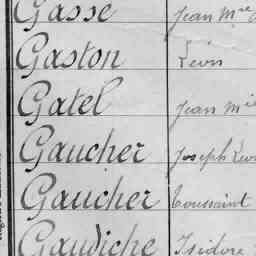 Gasse Jean Mre
Gaston Léon
Gatel Jean Mie
Gaucher Joseph Léon
Gaucher Toussaint
Gaudiche Isidore